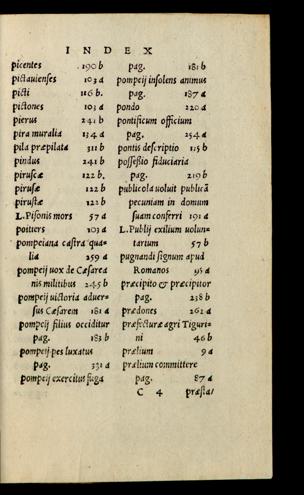 INDEX
picentes 190 b
pictauienses 103 a
picti 116 b.
pictones 103 a
pierus 241 b
pira muralia 134 a
pila præpilata 311 b
pindus 241 b
piruscæ 122 b.
pirusæ 122 b
pirustæ 121 b
L. Pisonis mors 57 a
poitiers 103 a
pompeiana castra qua=
lia 259 a
pompeij uox de Cæsarea
nis militibus 245 b
pompeij uictoria aduer=
sus Cæsarem 181 a
pompeij filius occiditur
pag. 183 b
pompeij pes luxatus
pag. 331 a
pompeij exercitus fuga
pag. 181 b
pompeij insolens animus
pag. 187 a
pondo 220 a
pontificum officium
pag. 254 a
pontis descriptio 115 b
possessio fiduciaria
pag. 219 b
publicola uoluit publicā
pecuniam in domum
suam conferri 191 a
L. Publij exilium uolun=
tarium 57 b
pugnandi signum apud
Romanos 96 a
præcipito & præcipitor
pag. 238 b
prædones 262 a
præfecturæ agri Tiguri=
ni 46 b
prælium 9 a
prælium committere
pag. 87 a
C 4 præsta/